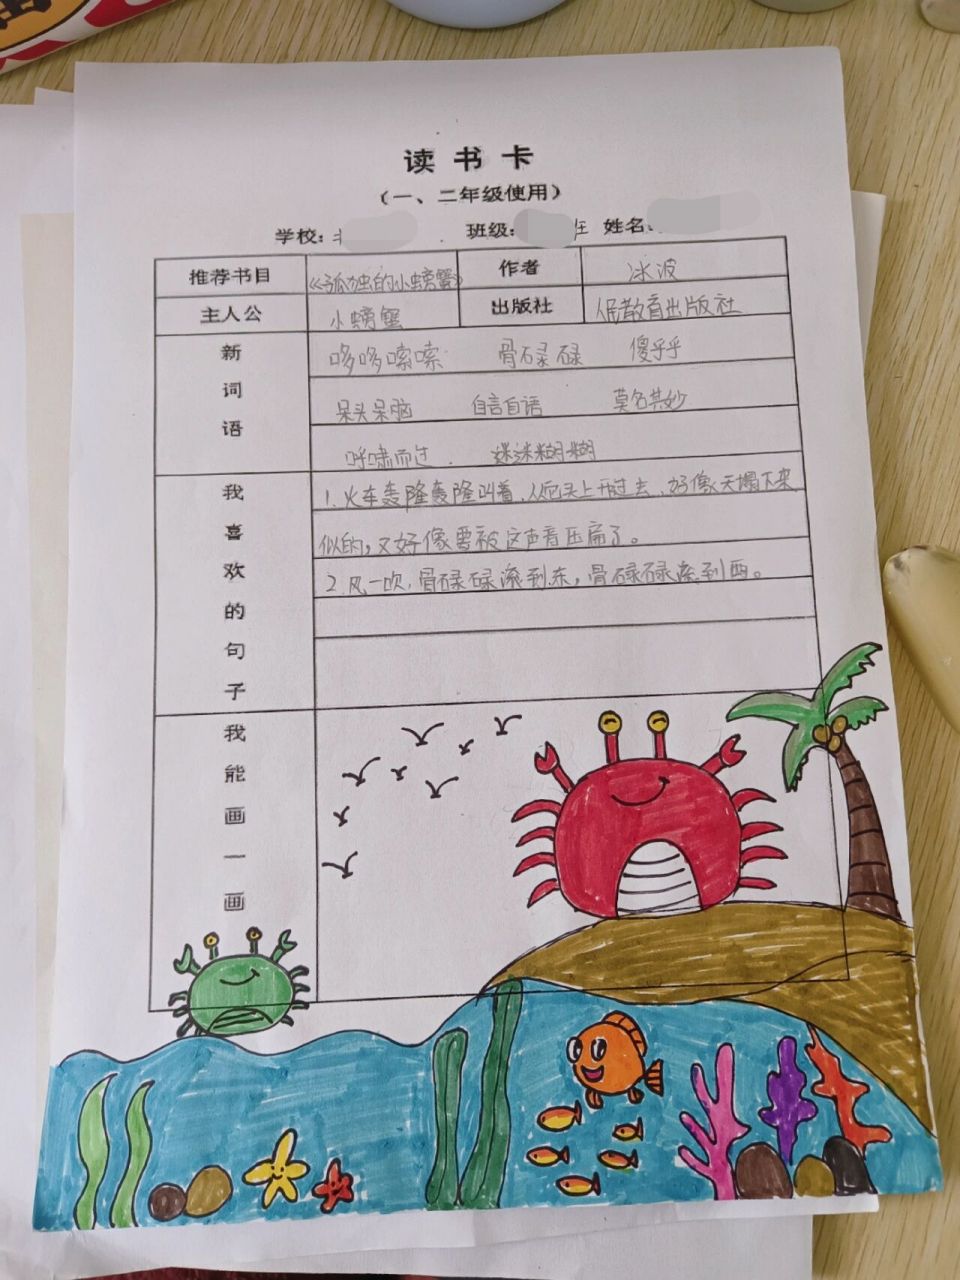 读书卡
（一、二年级使用）
学校： 班级： 班 姓名：
推荐书目 《孤独的小螃蟹》 作者 冰波
主人公 小螃蟹 出版社 人民教育出版社
新词语
哆哆嗦嗦 骨碌碌 傻乎乎
呆头呆脑 自言自语 莫名其妙
呼啸而过 迷迷糊糊
我喜欢的句子
1.火车轰隆轰隆叫着，从它头上开过去，好像天塌下来
似的，又好像要被这声音压扁了。
2.风一吹，骨碌碌滚到东，骨碌碌滚到西。
我能画一画